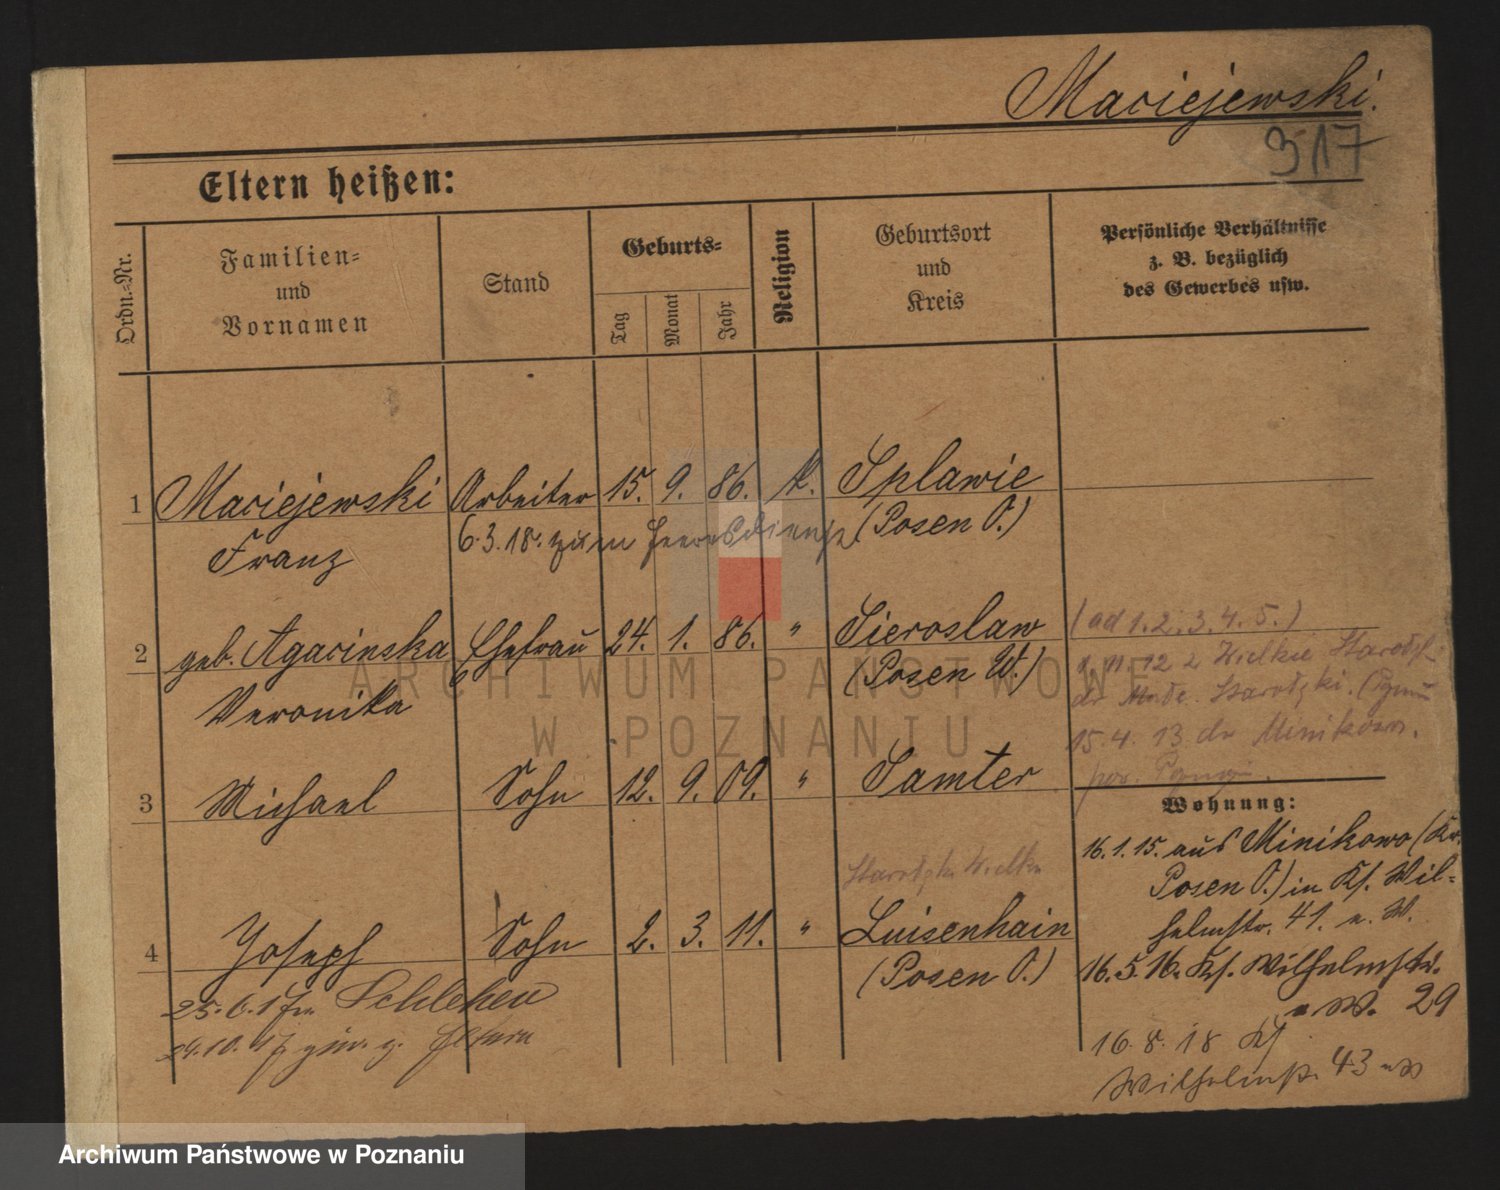 Maciejewski.
317
Eltern heißen:
Ordn.=Nr.
Familien=
und
Vornamen
Stand
Geburts=
Tag
Monat
Jahr
Religion
Geburtsort
und
Kreis
Persönliche Verhältnisse
z. B. bezüglich
des Gewerbes usw.
1 Maciejewski Arbeiter 15. 9. 86. k. Splawie
Franz 6.3.18. zum Heeresdienst (Posen O.)
2 geb. Agacinska Ehefrau 24. 1. 86. " Sieroslaw
Veronika (Posen W.)
(ad 1.2.3.4.5.)
12 z Wielkie
15.4.13 do Minikowo.
pow.
3 Michael Sohn 12. 9. 09. " Samter
Wohnung:
16.1.15. aus Minikowo (Kr.
Posen O.) in Kf. Wil=
helmstr. 41. n. W.
16.5.16. Kf. Wilhelmstr.
n. W. 29
16.8.18 Kf
Wilhelmstr. 43 n W
4 Joseph Sohn 2. 3. 11. " Luisenhain
(Posen O.)
25.6.17 Schlehen
29.10.17 z. Eltern
ARCHIWUM PAŃSTWOWE
W POZNANIU
Archiwum Państwowe w Poznaniu